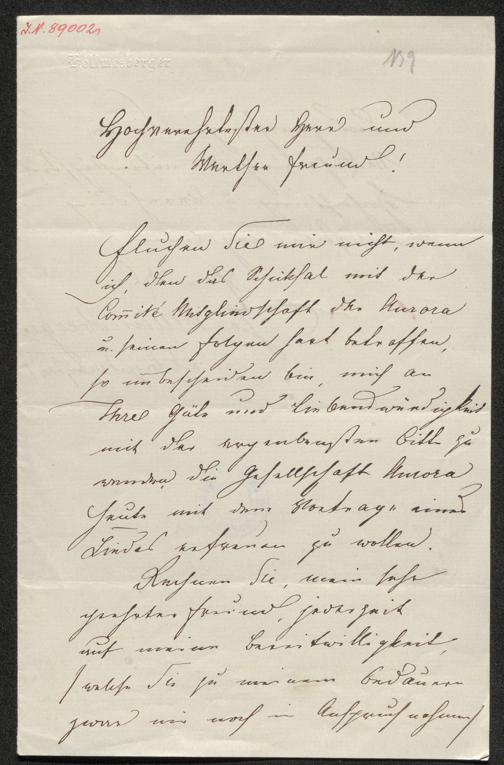 I.N. 89002
Hellmesberger
139
Hochverehrtester Herr und
Werther Freund!
Fluchen Sie mir nicht, wenn
ich, den das Schicksal mit der
Com̅ité Mitgliedschaft der Aurora
u. seinen Folgen hart betroffen,
so unbescheiden bin, mich an
Ihre Güte und Liebenswürdigkeit
mit der ergebensten Bitte zu
wenden, die Gesellschaft Aurora
heute mit dem Vortrage eines
Liedes erfreuen zu wollen.
Rechnen Sie, mein sehr
geehrter Freund, jederzeit
auf meine Bereitwilligkeit,
(welche Sie zu meinem Bedauern
zwar nie noch in Anspruch nahmen)